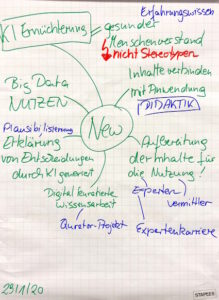 Erfahrungswissen
KI Ernüchterung = gesunder
Menschenverstand
nicht Stereotypen
Inhalte verbinden
mit Anwendung
DIDAKTIK
Big Data
NUTZEN
New
Plausibilisierung
Erklärung
von Entscheidungen
durch KI generiert
Aufbereitung
der Inhalte für
die Nutzung!
Experten
Vermittler
Expertenkarriere
Digital kuratierte
Wissensarbeit
Curator-Projekt
29/1/20
STAPLES